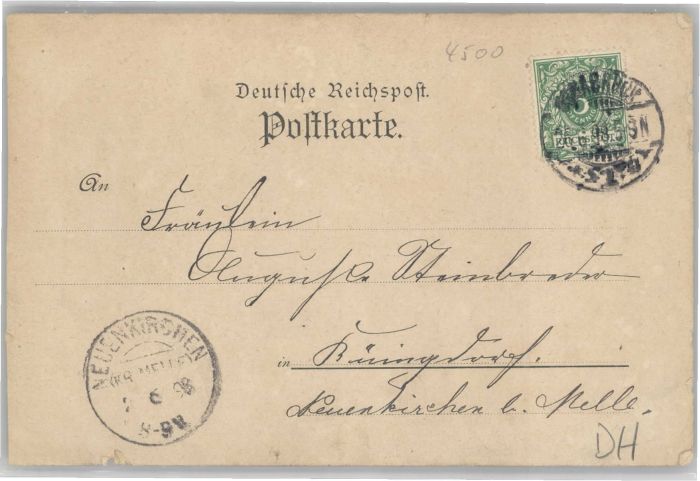 4500
Deutsche Reichspost.
Postkarte.
An Fräulein
Auguste Steinbreder
in Küingdorf.
Neuenkirchen b. Melle.
NEUENKIRCHEN
(KR. MELLE)
6 98
8-9V
DH